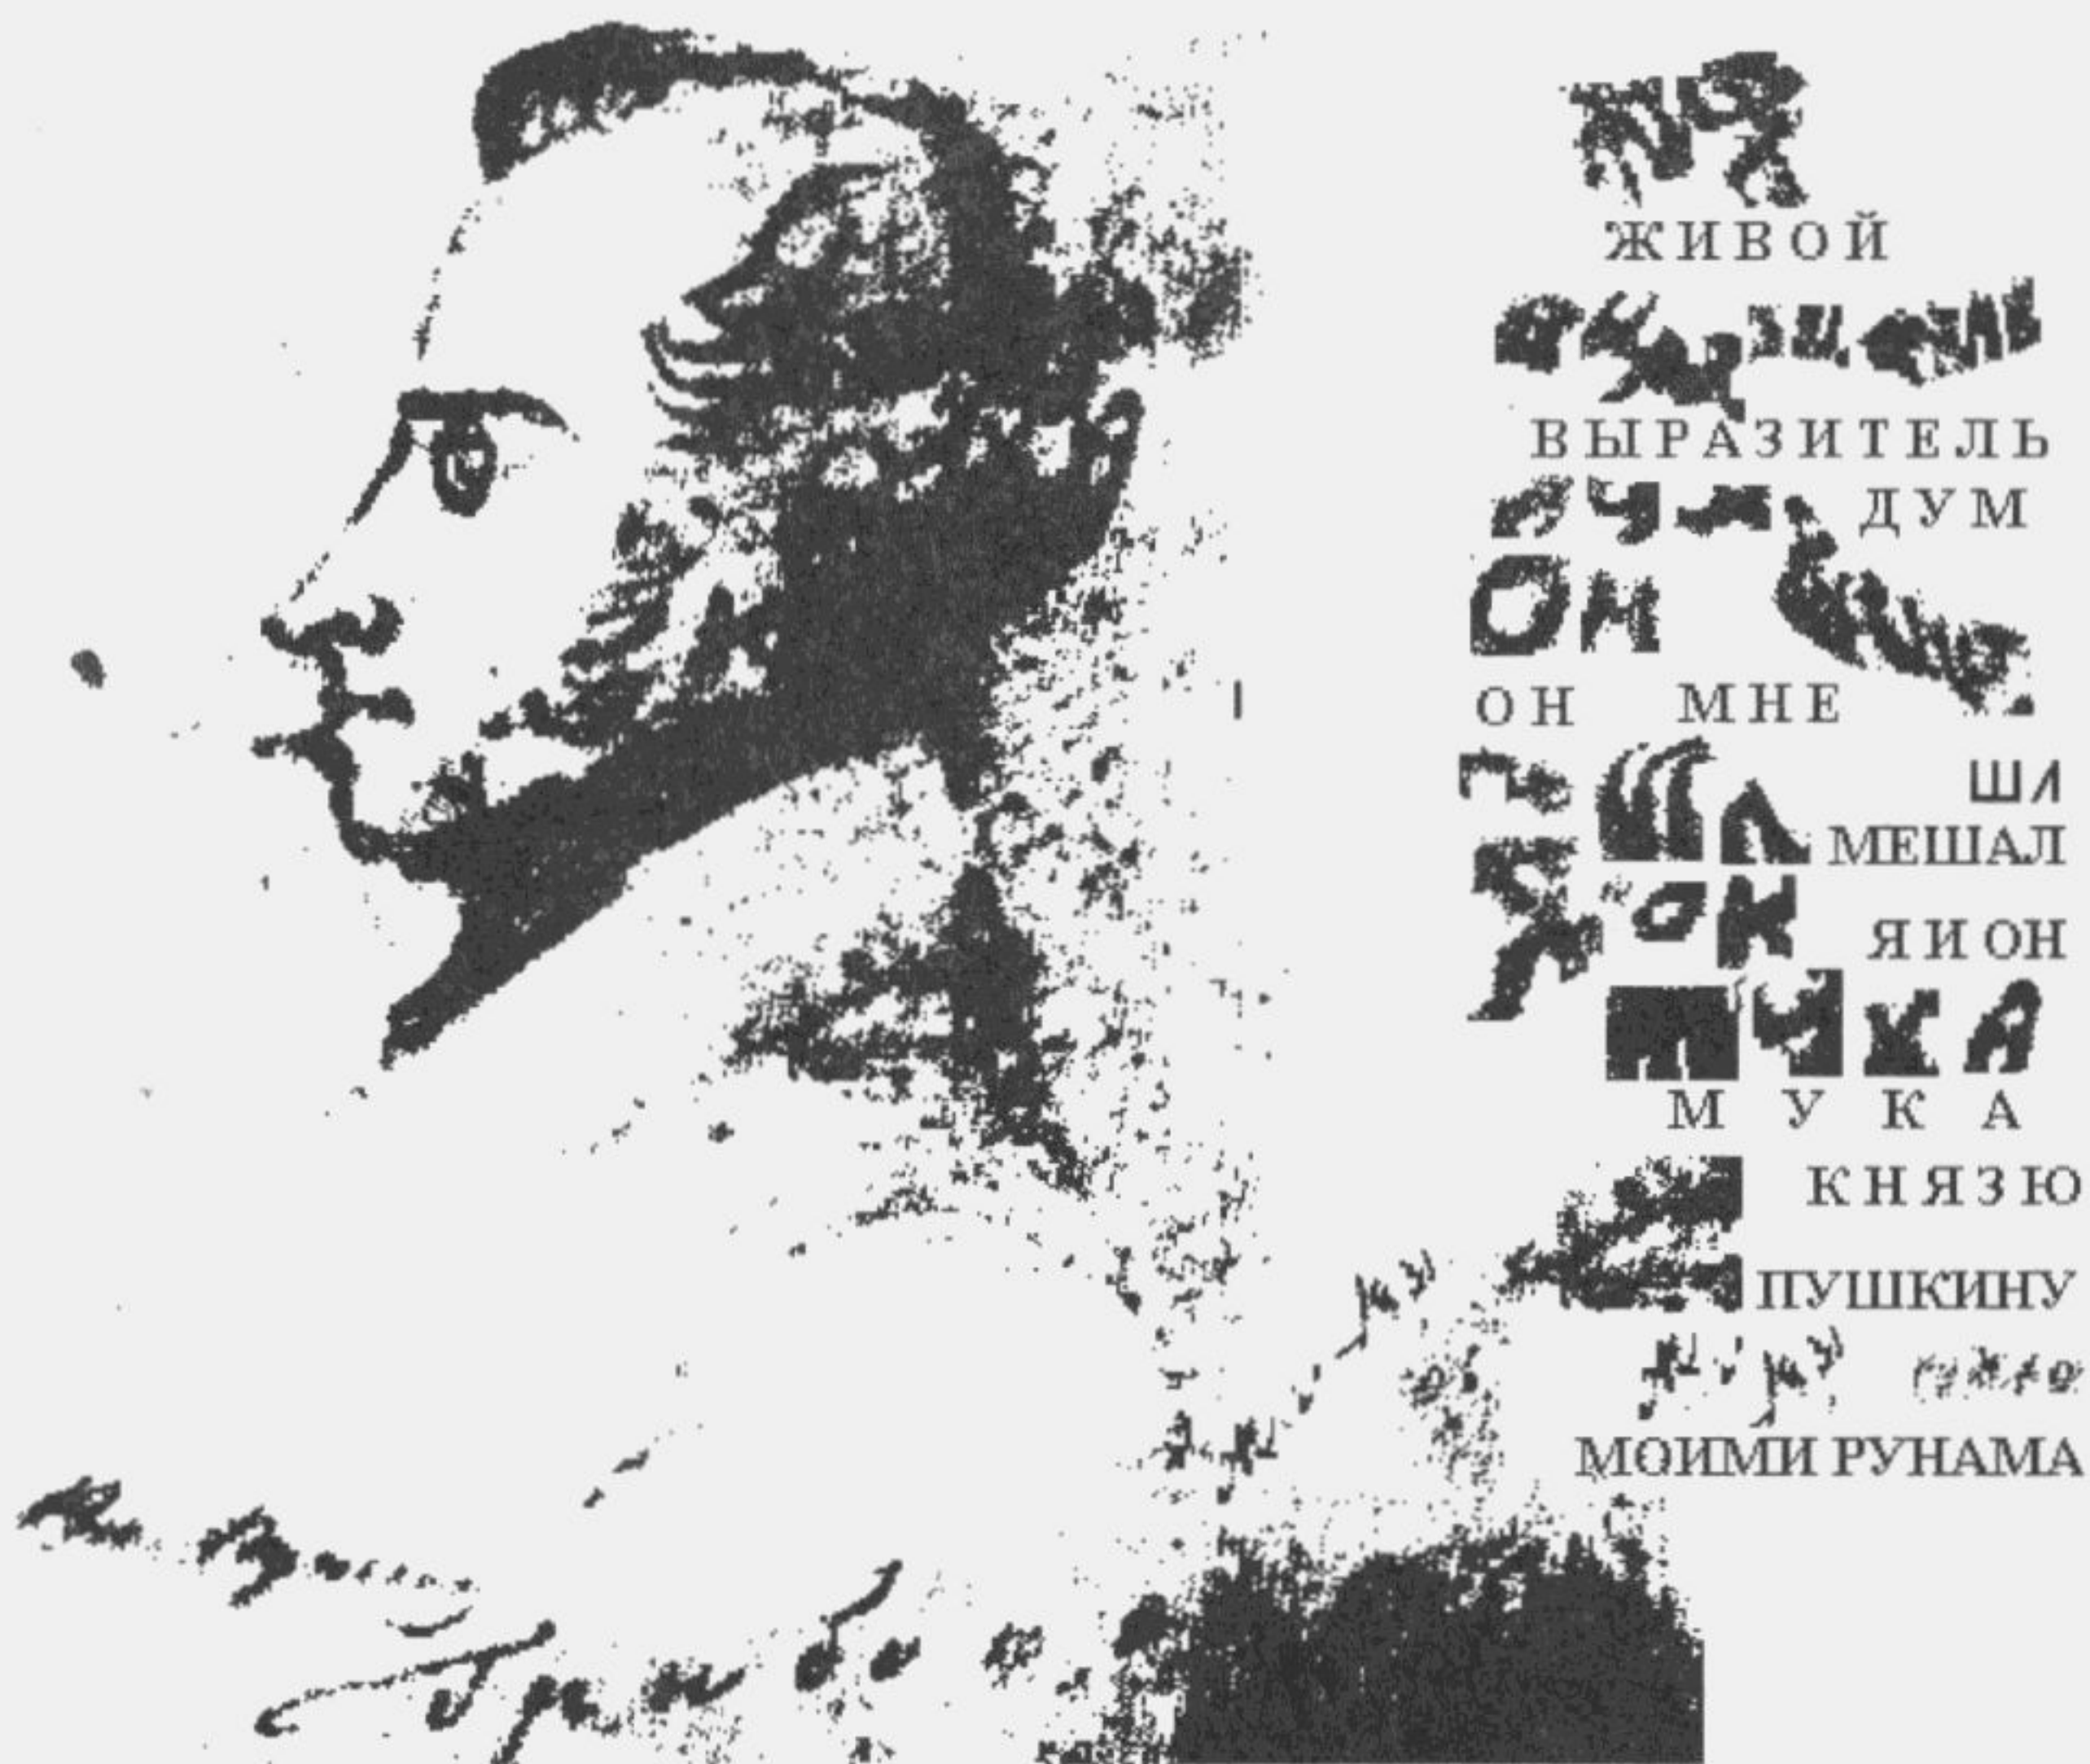 ЖИВОЙ
ВЫРАЗИТЕЛЬ
ДУМ
ОН
ОН МНЕ
ШИ
МЕШАЛ
Я И ОН
МУКА
МУКА
КНЯЗЮ
ПУШКИНУ
МОИМИ РУНАМА